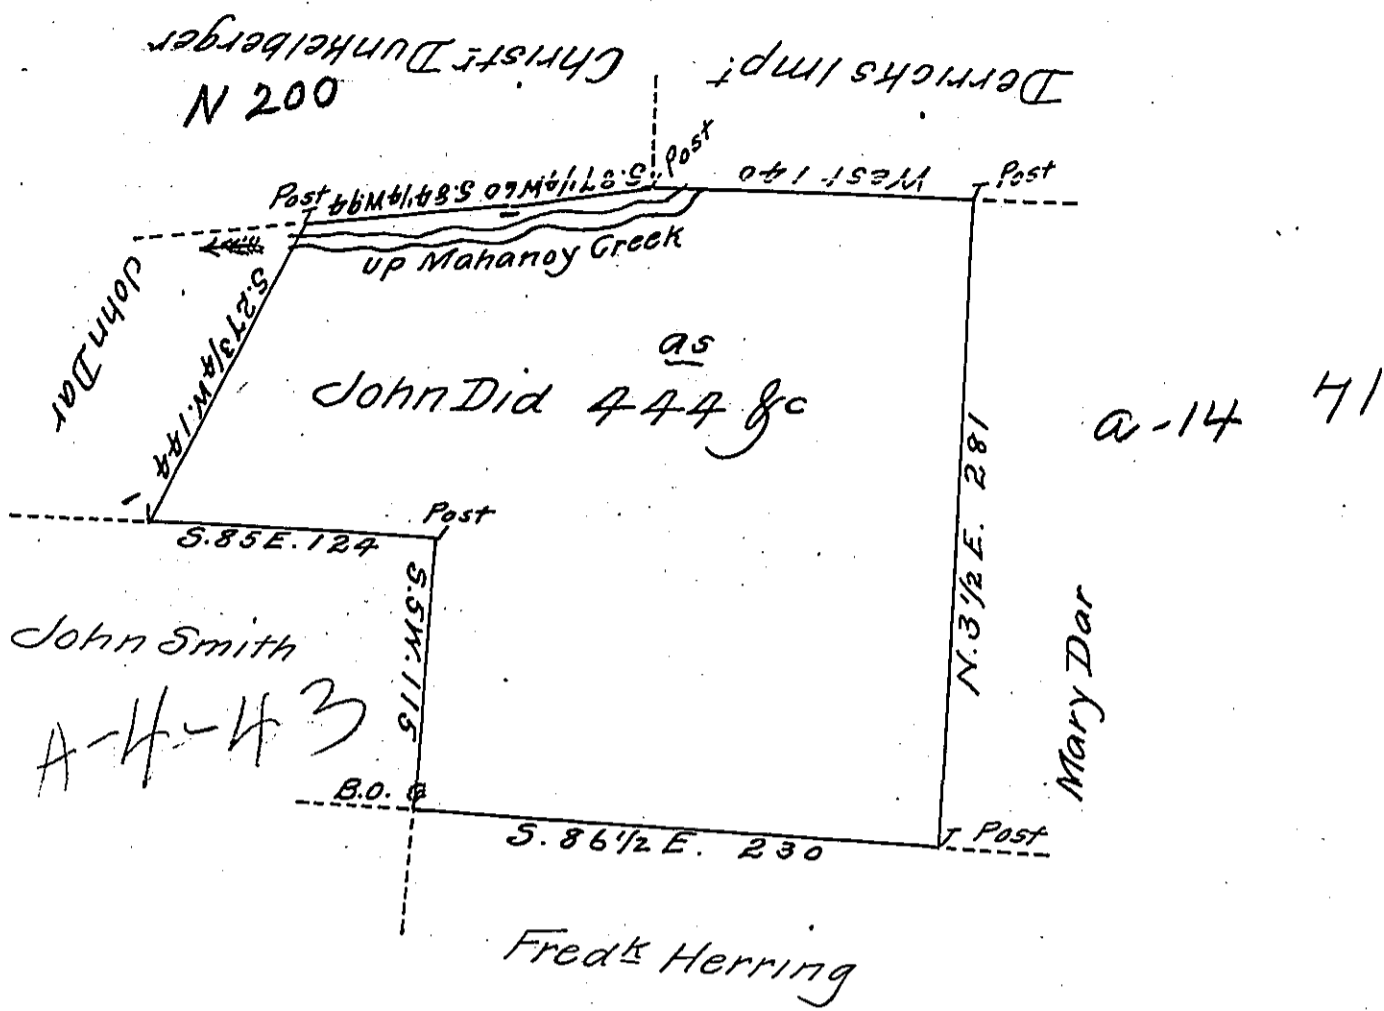 Christr Dunkelberger
Derricks Impt
N 200
Post
S.84 1/4 W 94
S.87 1/4 W 60
Post
West 140
Post
up Mahanoy Creek
John Dar
S.27 3/4 W. 144
as
John Did 444 &c
a-14
71
N. 3 1/2 E. 281
Post
S.85 E. 124
S.5 W. 115
John Smith
A-4-43
Mary Dar
B.O.
S. 86 1/2 E. 230
Post
Fredk Herring